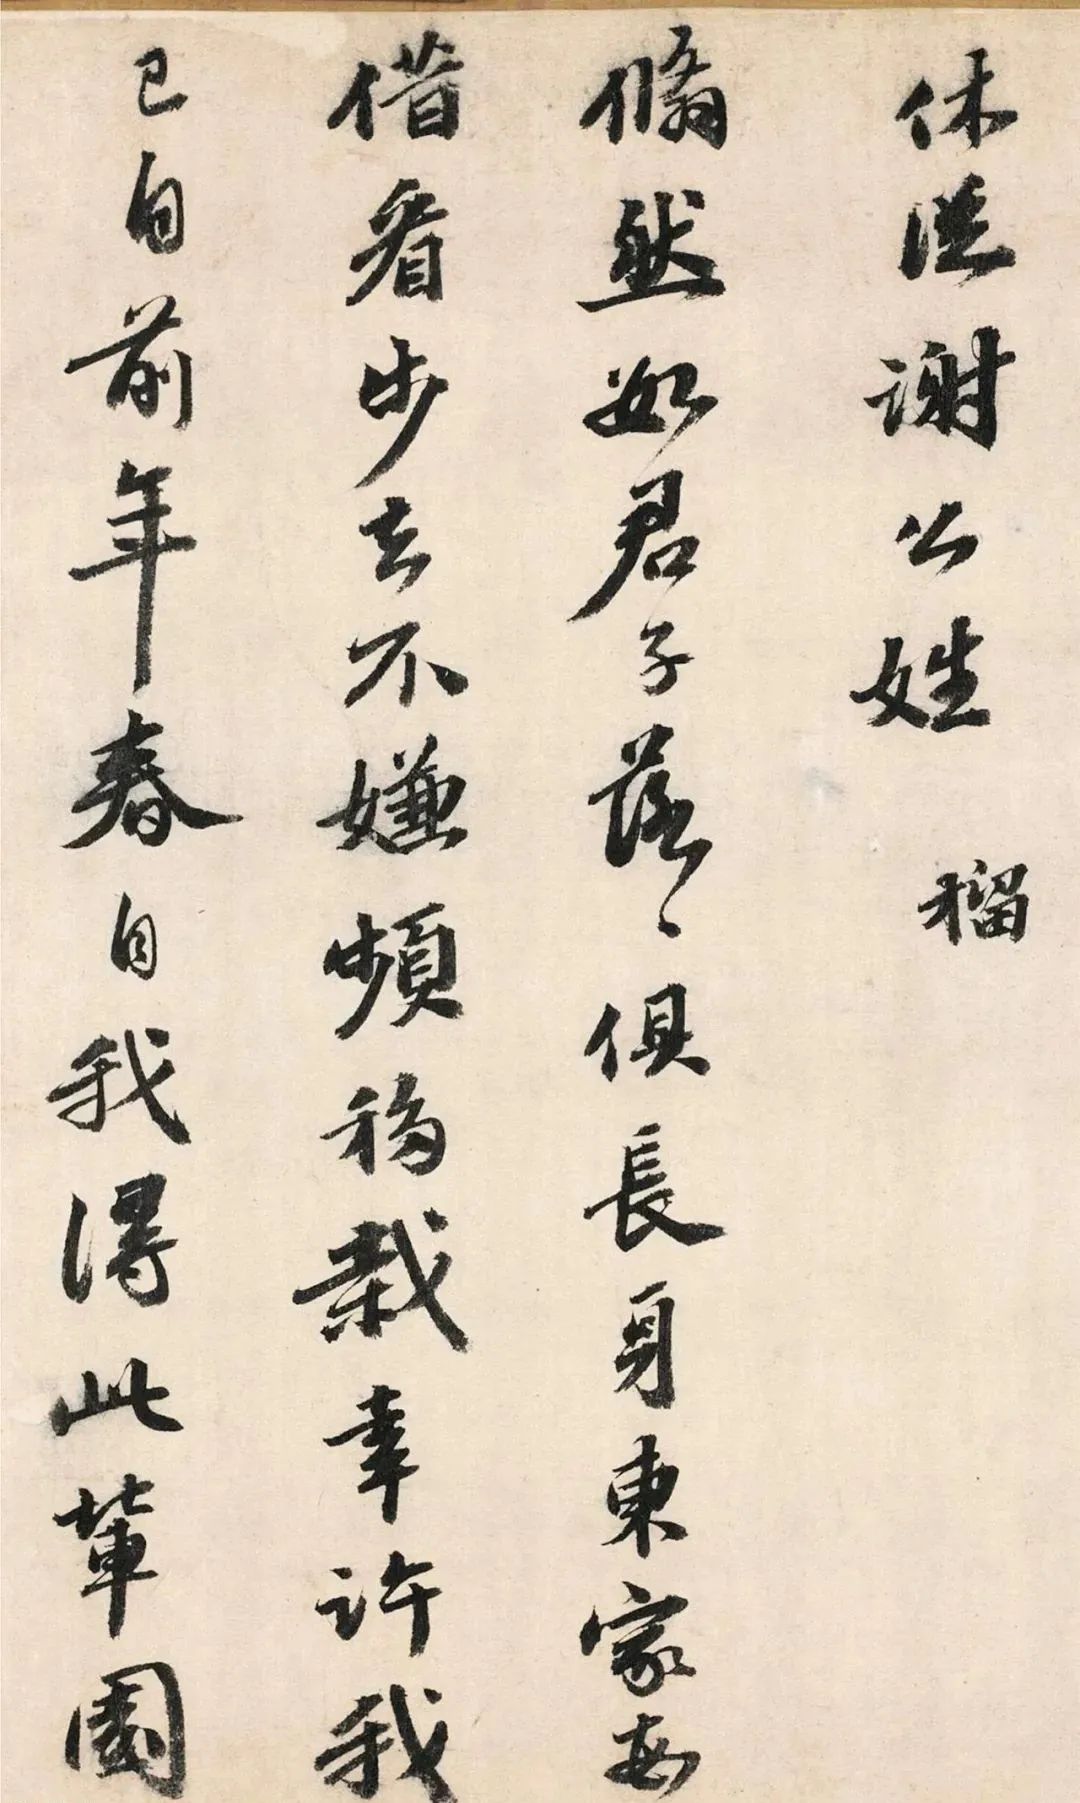 休從謝公姓 榴
翛然如君子落々俱長身東家每
借看步去不嫌頻移栽幸許我
已自前年春自我得此輩園